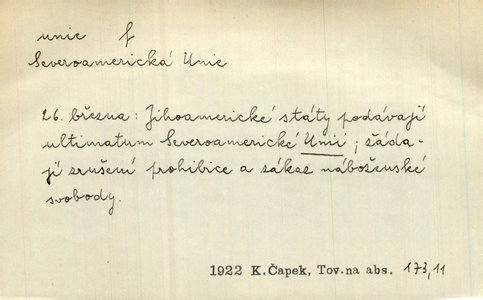 unie f
Severoamerická Unie
26. března: Jihoamerické státy podávají
ultimatum Severoamerické Unii; žáda-
jí zrušení prohibice a zákaz náboženské
svobody.
1922 K.Čapek, Tov.na abs. 173,11